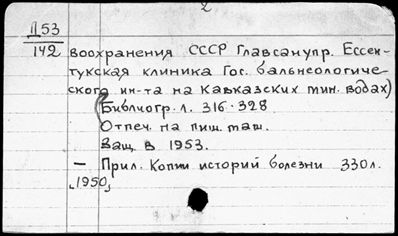 2
Д53
142
воохранения СССР Главсанупр. Ессен-
тукская клиника Гос. бальнеологиче-
ского ин-та на Кавказских мин. водах)
Библиогр. л. 316-328
Отпеч. на пиш. маш.
Защ. в 1953.
— Прил. Копии историй болезни 330 л.
"1950"